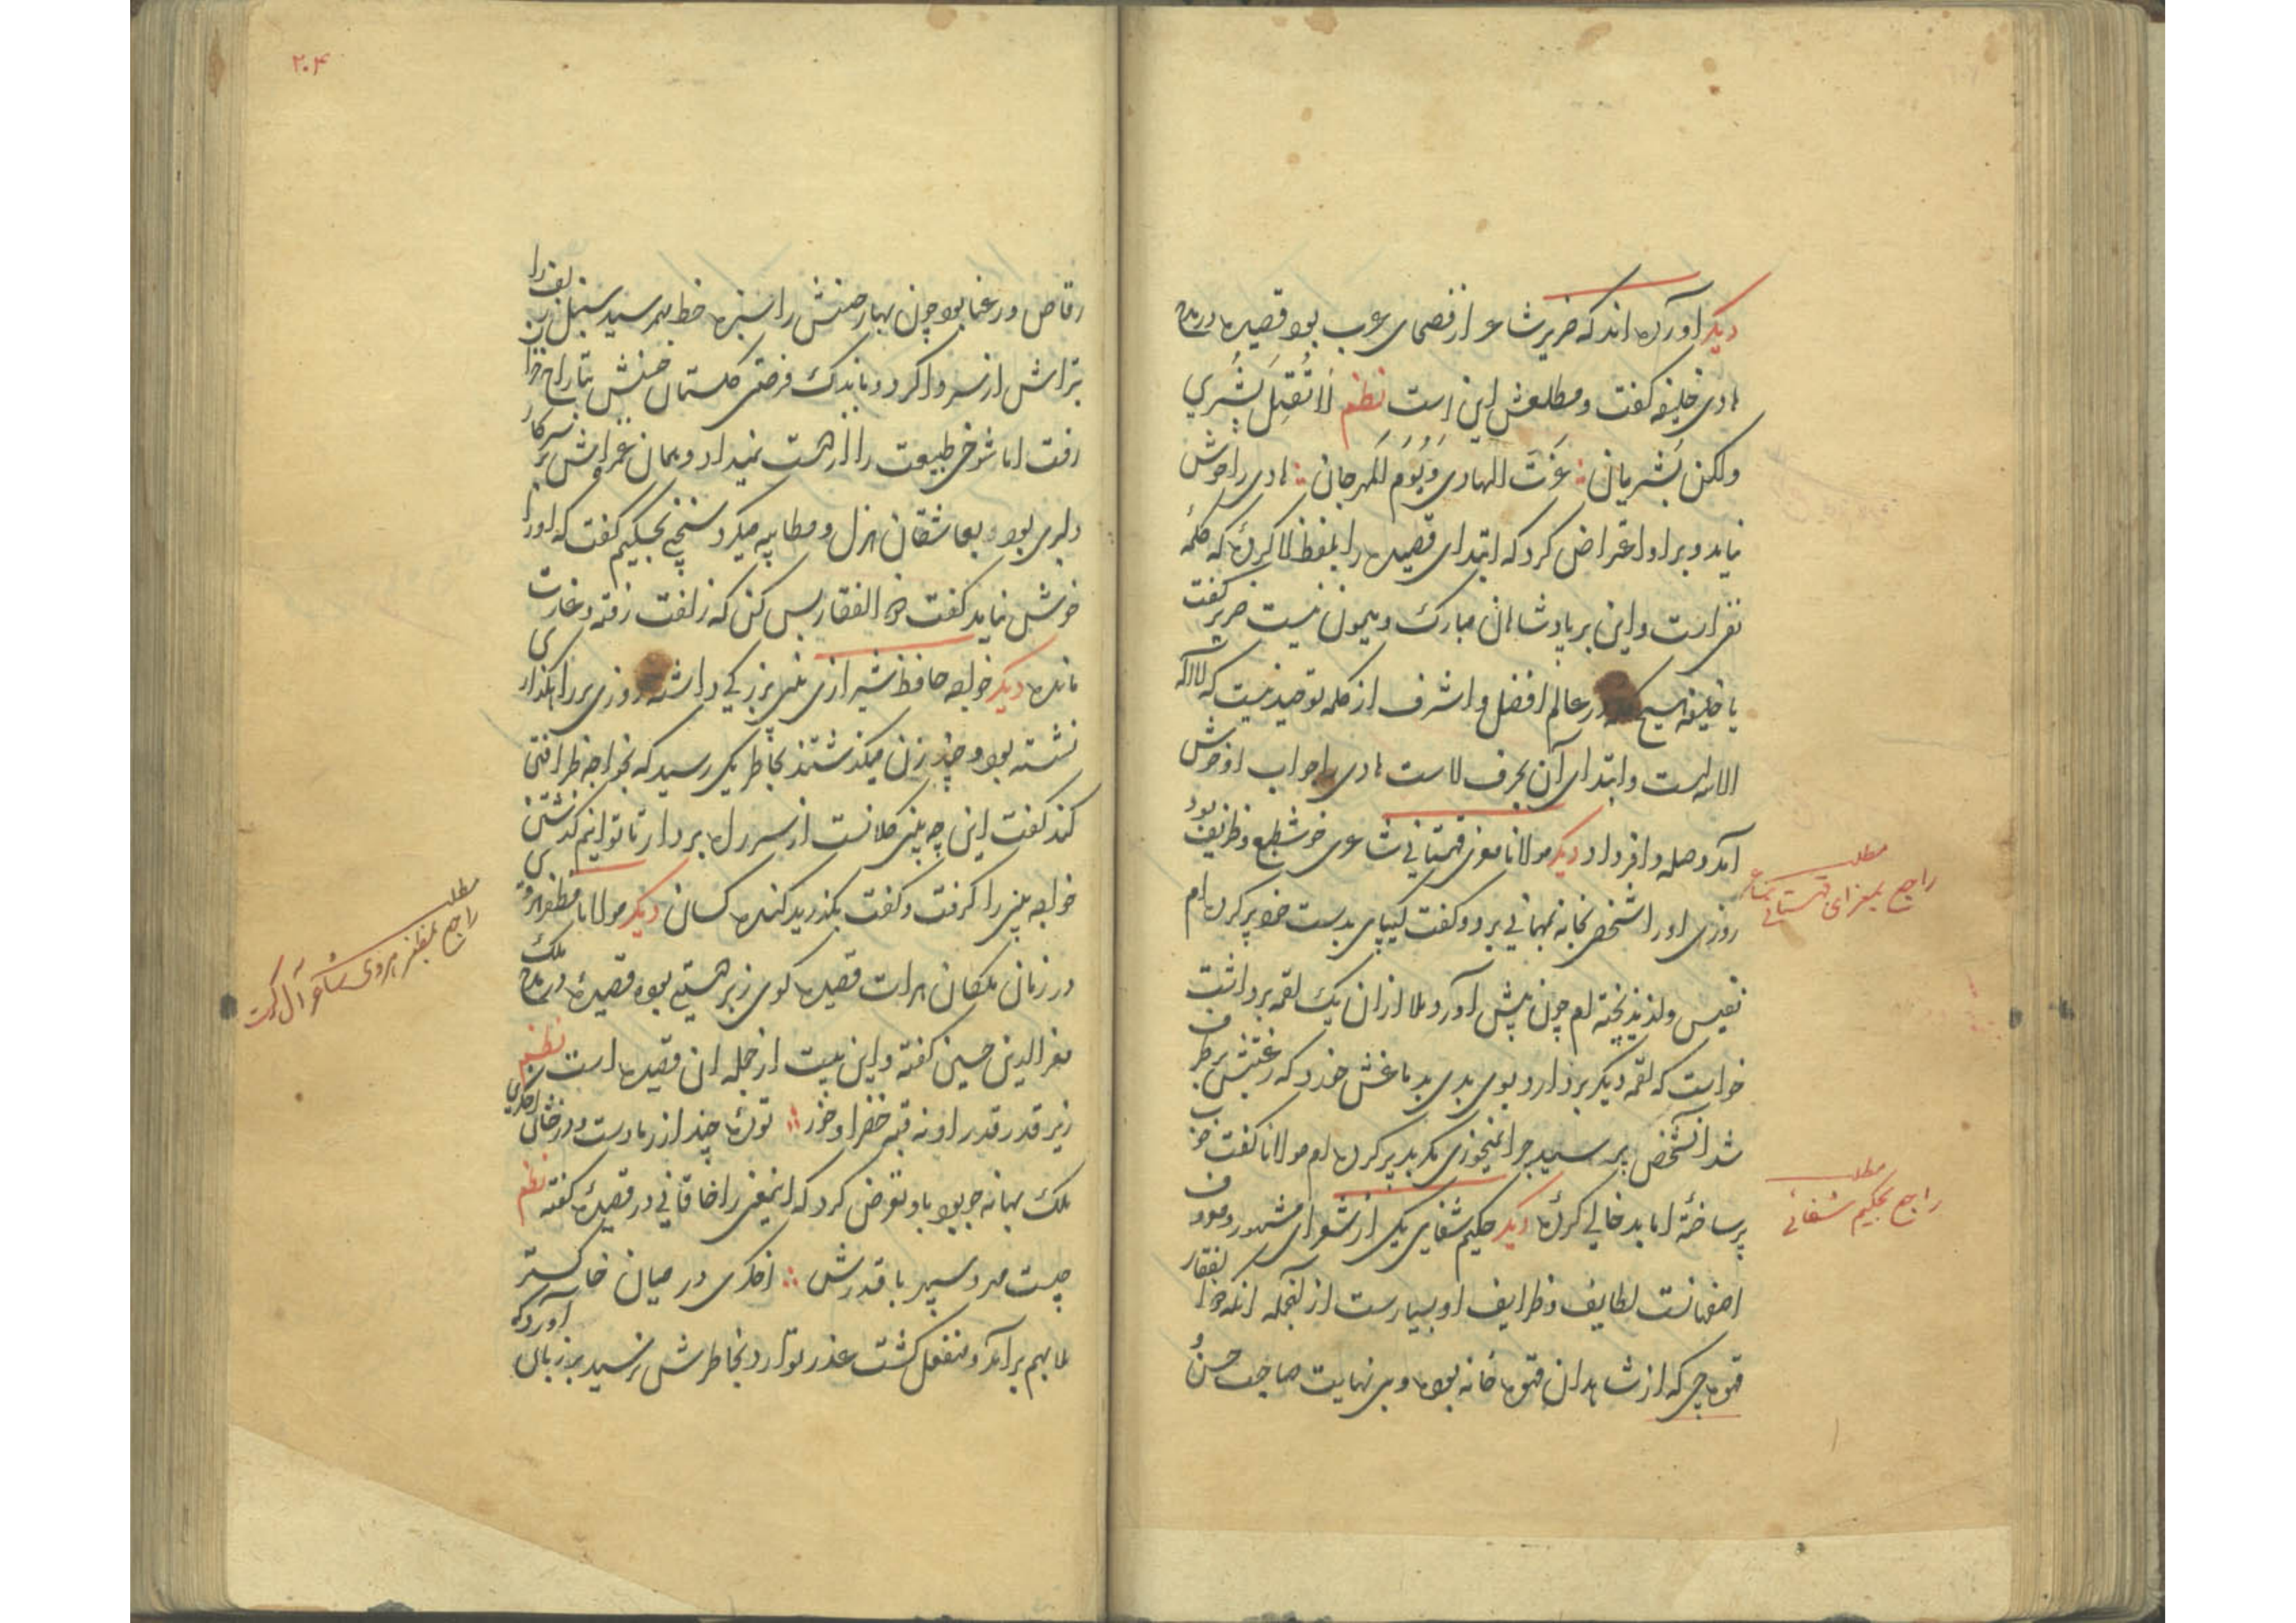 دیگر آورده‌اند که ضریر شاعر از فصحای عرب بود قصیده در مدح
هادی خلیفه گفت و مطلعش این است نظم لَا تُقْبِل بُشْرَي
ولکن بُشریان ∴ غرّت الهادی وَیَوْمَ المهرجان ∴ هادی را خوش
نیاید و بر او اعتراض کرد که ابتدای قصیده را بلفظ لا کردهٔ که کلمهٔ
نفی است و این بر پادشاهان مبارک و میمون نیست ضریر گفت
یا خلیفه هیچ کلمه در عالم افضل و اشرف از کلمه توحید نیست که لا اله
الا الله است و ابتدای آن بحرف لاست هادی را جواب او خوش
آمد و صله وافر داد دیگر مولانا معزی قهستانی شاعری خوشطبع و ظریف بود
روزی او را شخصی بخانه بمهمانی برد و گفت کیپای بدست خود پر کرده‌ام
نفیس و لذیذ پخته‌ام چون پیش آورد ملا ازان یک لقمه برداشت
خواست که لقمه دیگر بردارد بوی بدی بدماغش خورد که رغبتش برطرف
شد آنشخص پرسید چرا نمیخوری مگر بد پر کرده‌ام مولانا گفت خوب
پر ساختهٔ اما بد خالی کردهٔ دیگر حکیم شفایی یکی از شعرای مشهور و معروف
اصفهانست لطایف و ظرایف او بسیارست از آنجمله آنکه ذوالفقار
قهوه‌چی که از شاهدان قهوه‌خانه بود و بی نهایت صاحب حسن
مطلب
راجع بمیرزای قهستانی شاعر
مطلب
راجع بحکیم شفائی
۲۰۴
رقاص و رعنا بود چون بهار حسنش را سبزه خط بهم رسید سنبل زلف را
بتراش از سر وا کرد و باندک فرصتی گلستان حسنش بتاراج خزان
رفت اما شوخی طبیعت را از دست نمیداد و بهمان غمزاش بر سر کار
دلبری بود و بعاشقان هزل و مطایبه میکرد سخنی بحکیم گفت که او را
خوش نیاید گفت ذوالفقار بس کن که زلفت رفته و غارت
مانده دیگر خواجه حافظ شیرازی بینی بزرگی داشته روزی بر راهگذاری
نشسته بود و چند زن میگذشتند بخاطر یکی رسید که بخواجه ظرافتی
کند گفت این چه بینی کلانست از سر ره بردار تا توانیم گذشتن
خواجه بینی را گرفت و گفت بگذرید گنده کسان دیگر مولانا مظفر هروی
در زمان ملکان هرات قصیده گوی زبردستی بوده قصیدهٔ در مدح ملک
معزالدین حسین گفته و این بیت از جمله آن قصیده است نظم
زیر قدر قدر او نه قبه خضرا و خور ∴ تودهٔ چند از رمادست و درخشان اخگری
ملک بهانه جو بود باو تعرض کرد که اینمعنی را خاقانی در قصیدهٔ گفته نظم
چیست مهر و سپهر با قدرش ∴ اخگری در میان خاکستر
ملا بهم برآمد و منفعل گشت عذر توارد بخاطرش نرسید بر زبان آورد که
مطلب
راجع بمظفر هروی شاعر آل کرت